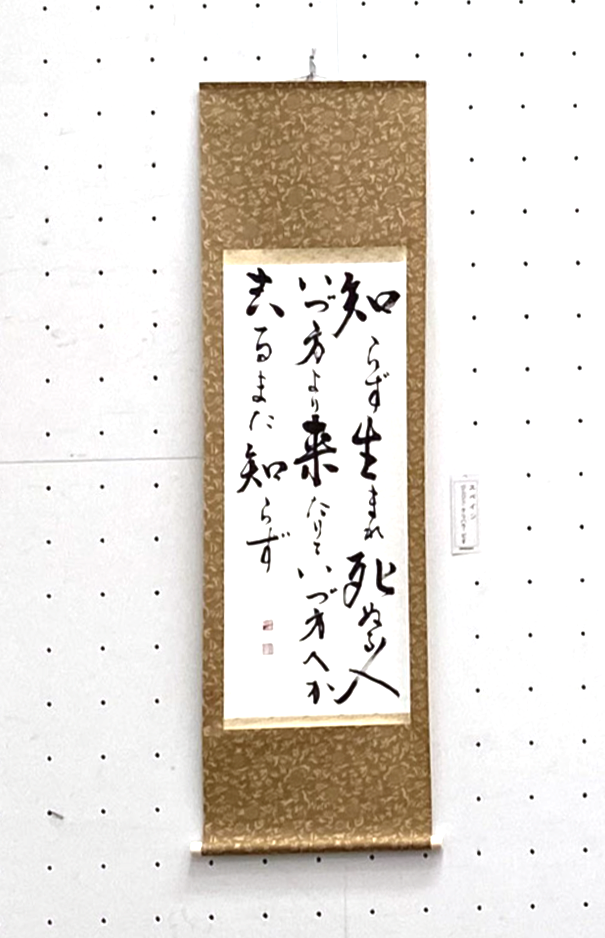 知らず生まれ死ぬる人
いづ方より来たりていづ方へか
去るまた知らず
スペイン